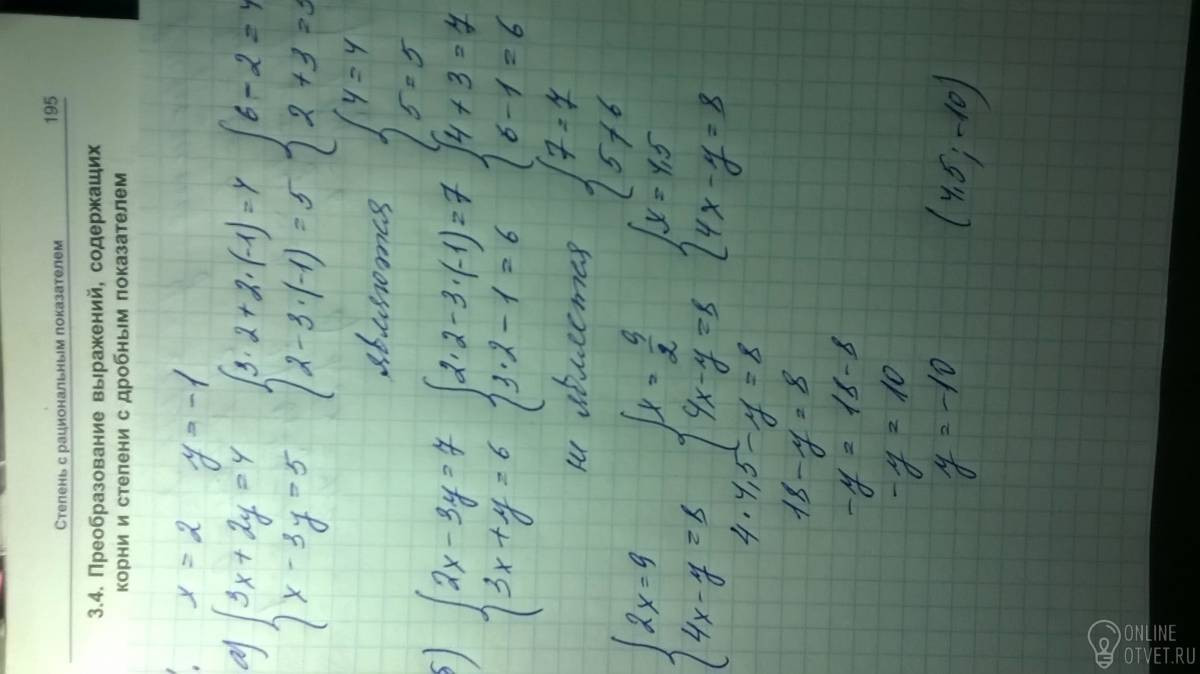 Степень с рациональным показателем 195
3.4. Преобразование выражений, содержащих
корни и степени с дробным показателем
x = 2 y = -1
а) {3x + 2y = 4 {3·2 + 2·(-1) = 4 {6 - 2 = 4
{x - 3y = 5 {2 - 3·(-1) = 5 {2 + 3 = 5
{4 = 4
является {5 = 5
б) {2x - 3y = 7 {2·2 - 3·(-1) = 7 {4 + 3 = 7
{3x + y = 6 {3·2 - 1 = 6 {6 - 1 = 6
{7 = 7
не является {5 ≠ 6
{2x = 9 {x = 9/2 {x = 4,5
{4x - y = 8 {4x - y = 8 {4x - y = 8
4·4,5 - y = 8
18 - y = 8
-y = 18 - 8
-y = 10
y = -10 (4,5; -10)
ONLINE
OTVET.RU